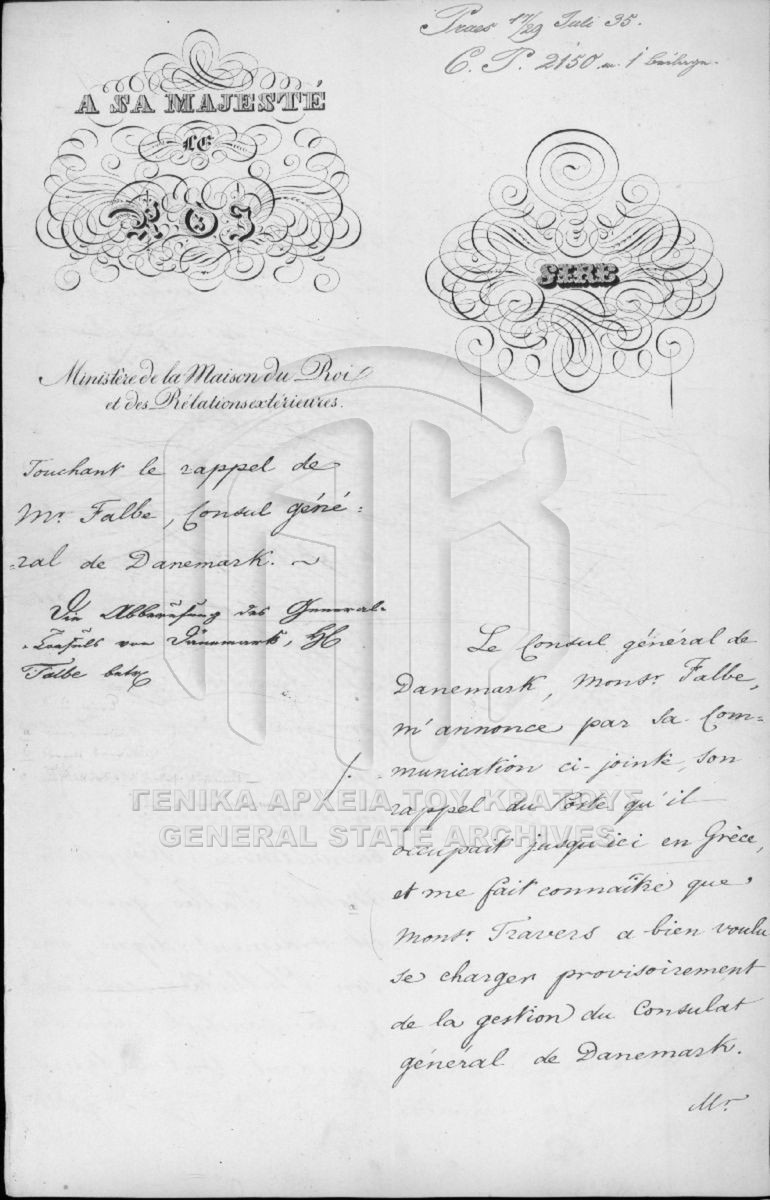 Praes 17/29 Juli 35.
C. P. 2150 m. 1 Beilage.
A SA MAJESTÉ
LE
ROI
SIRE
Ministère de la Maison du Roi
et des Rélations extérieures.
Touchant le rappel de
Mr. Falbe, Consul géné-
-ral de Danemark.
Die Abberufung des General-
-Consuls von Dänemark, H
Falbe betr
Le Consul général de
Danemark, Monsr. Falbe,
m'annonce par sa Com-
-munication ci-jointe, son
rappel du Poste qu'il
occupait jusqu'ici en Grèce,
et me fait connaître que
Monsr. Travers a bien voulu
se charger provisoirement
de la gestion du Consulat
général de Danemark.
Mr.
ΓΕΝΙΚΑ ΑΡΧΕΙΑ ΤΟΥ ΚΡΑΤΟΥΣ
GENERAL STATE ARCHIVES